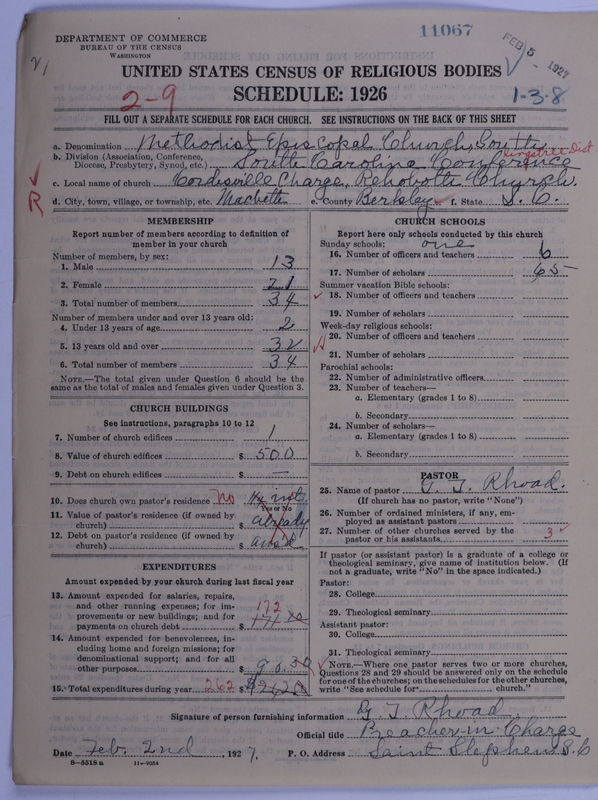 11067
DEPARTMENT OF COMMERCE
BUREAU OF THE CENSUS
WASHINGTON
FEB 5 - 1927
UNITED STATES CENSUS OF RELIGIOUS BODIES
SCHEDULE: 1926
2-9
1-3-8
FILL OUT A SEPARATE SCHEDULE FOR EACH CHURCH. SEE INSTRUCTIONS ON THE BACK OF THIS SHEET
a. Denomination Methodist Episcopal Church, South
b. Division (Association, Conference, Diocese, Presbytery, Synod, etc.) South Carolina Conference Kingstree Dist
c. Local name of church Cordesville Charge, Rehoboth Church.
R
d. City, town, village, or township, etc. Macbeth e. County Berkley f. State S. C.
MEMBERSHIP
Report number of members according to definition of
member in your church
Number of members, by sex:
1. Male 13
2. Female 21
3. Total number of members 34
Number of members under and over 13 years old:
4. Under 13 years of age 2
5. 13 years old and over 32
6. Total number of members 34
NOTE.—The total given under Question 6 should be
same as the total of males and females given under Question 3.
CHURCH BUILDINGS
See instructions, paragraphs 10 to 12
7. Number of church edifices 1
8. Value of church edifices $ 500
9. Debt on church edifices $ —
10. Does church own pastor's residence No
Yes or No
11. Value of pastor's residence (if owned by
church) $ already
12. Debt on pastor's residence (if owned by
church) $
EXPENDITURES
Amount expended by your church during last fiscal year
13. Amount expended for salaries, repairs,
and other running expenses; for im-
provements or new buildings; and for
payments on church debt $ 172
14. Amount expended for benevolences, in-
cluding home and foreign missions; for
denominational support; and for all
other purposes $ 90.30
15. Total expenditures during year 262 $
CHURCH SCHOOLS
Report here only schools conducted by this church
Sunday schools: one
16. Number of officers and teachers 6
17. Number of scholars 65
Summer vacation Bible schools:
18. Number of officers and teachers
19. Number of scholars
Week-day religious schools:
20. Number of officers and teachers
21. Number of scholars
Parochial schools:
22. Number of administrative officers
23. Number of teachers—
a. Elementary (grades 1 to 8)
b. Secondary
24. Number of scholars—
a. Elementary (grades 1 to 8)
b. Secondary
PASTOR
25. Name of pastor G. T. Rhoad.
(If church has no pastor, write "None")
26. Number of ordained ministers, if any, em-
ployed as assistant pastors
27. Number of other churches served by the
pastor or his assistants 3
If pastor (or assistant pastor) is a graduate of a college or
theological seminary, give name of institution below. (If
not a graduate, write "No" in the space indicated.)
Pastor:
28. College
29. Theological seminary
Assistant pastor:
30. College
31. Theological seminary
NOTE.—Where one pastor serves two or more churches,
Questions 28 and 29 should be answered only on the schedule
for one of the churches; on the schedules for the other churches,
write "See schedule for church."
Signature of person furnishing information G T Rhoad
Official title Preacher-in-Charge
Date Feb. 2nd, 1927. P. O. Address Saint Stephens S.C
8-5518 a 11-9054